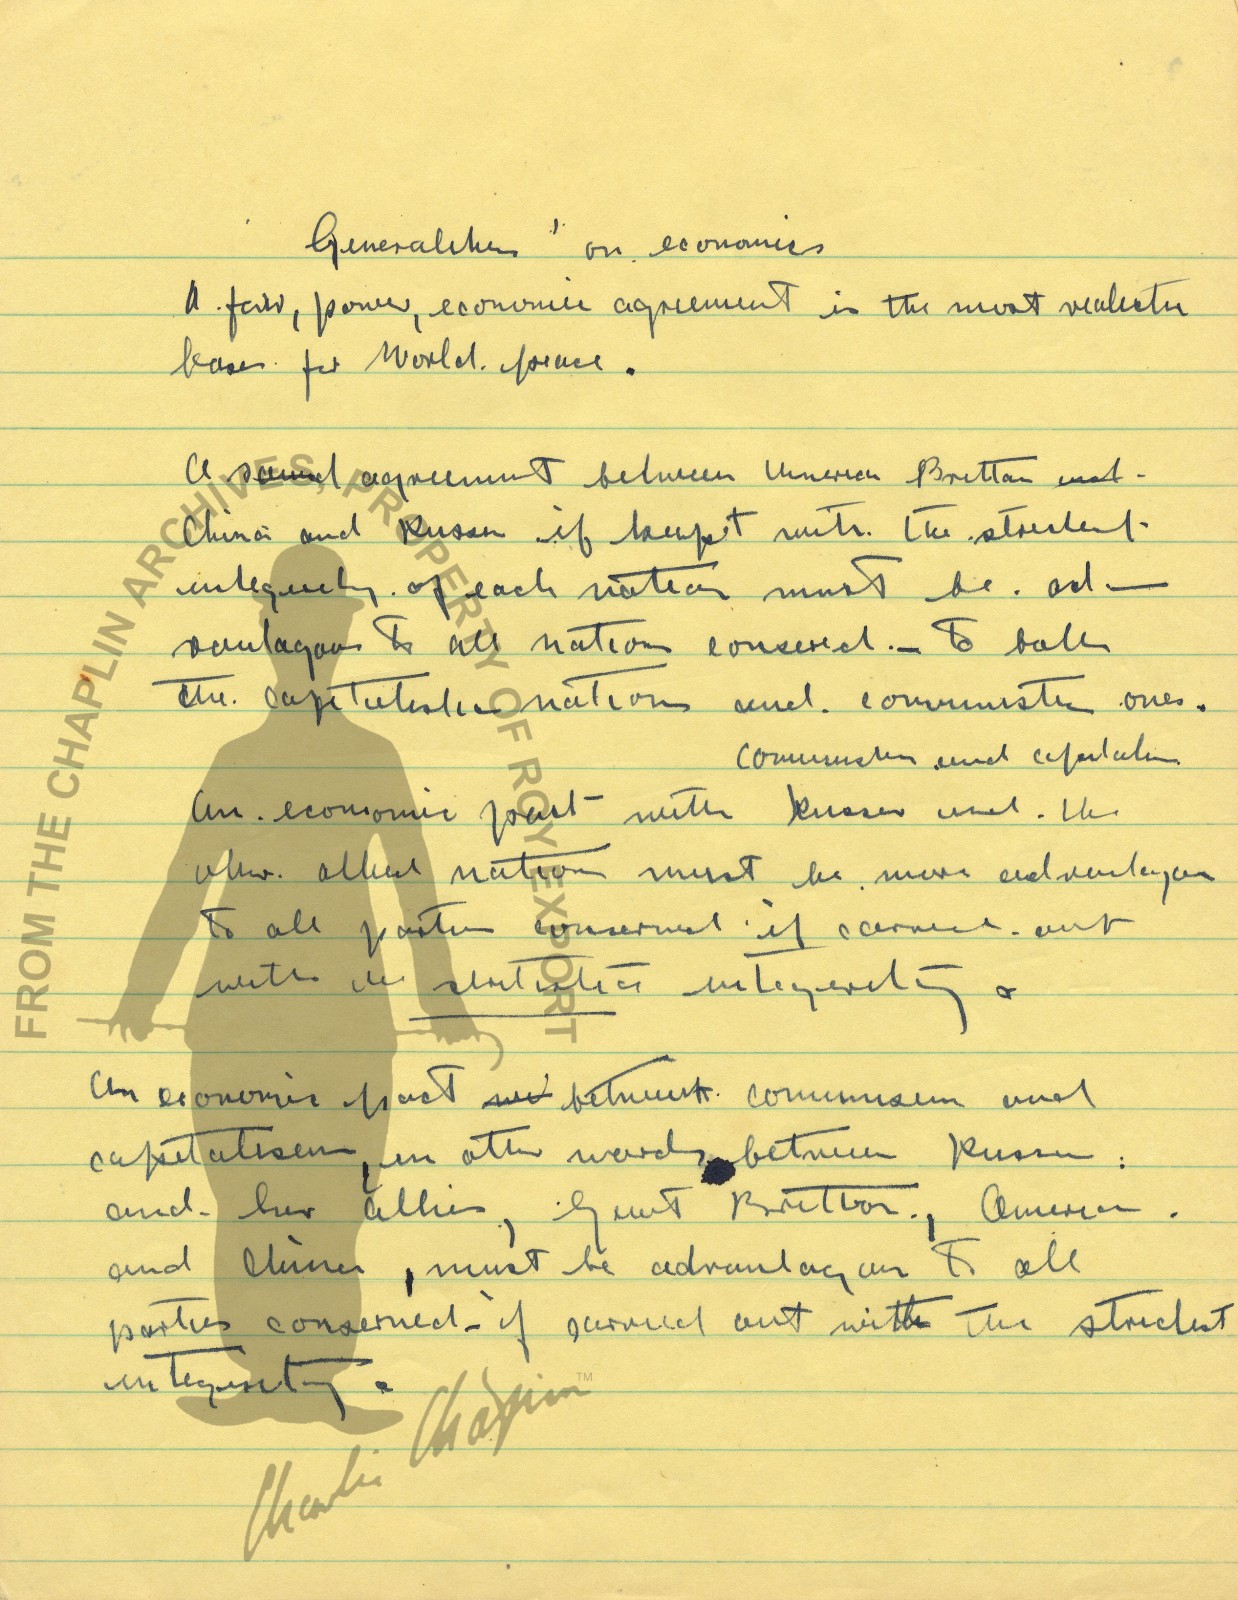 Generalities" on economics
A fair, power, economic agreement is the most realistic
bases for World peace.
A sound agreement between America Brittan and
China and Russia if keept with the strictest
integrity of each nation must be ad-
vantagous to all nations conserned — to both
the capitalistic nations and communistic ones.
communism and capitalism
An economic pact with Russia and the
other allied nations must be more advantagous
to all parties conserned if carried out
with the strictest integerity.
An economic pact between communism and
capitalism, in other words, between Russia
and her allies, Great Brittan, America
and China, must be advantagous to all
parties conserned - if carried out with the strictest
integerity.
FROM THE CHAPLIN ARCHIVES, PROPERTY OF ROY EXPORT
Charlie Chaplin™